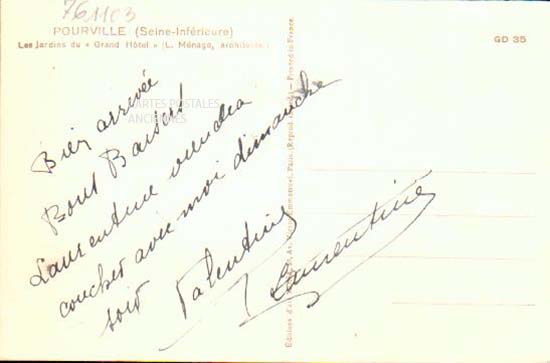 761103
POURVILLE (Seine-Inférieure)
Les Jardins du « Grand Hôtel » (L. Ménage, architecte.)
GD 35
CARTES POSTALES
ANCIENNES
Bien arrivée
Bons Baisers
Laurentine viendra
coucher avec moi dimanche
soir Valentine
Laurentine